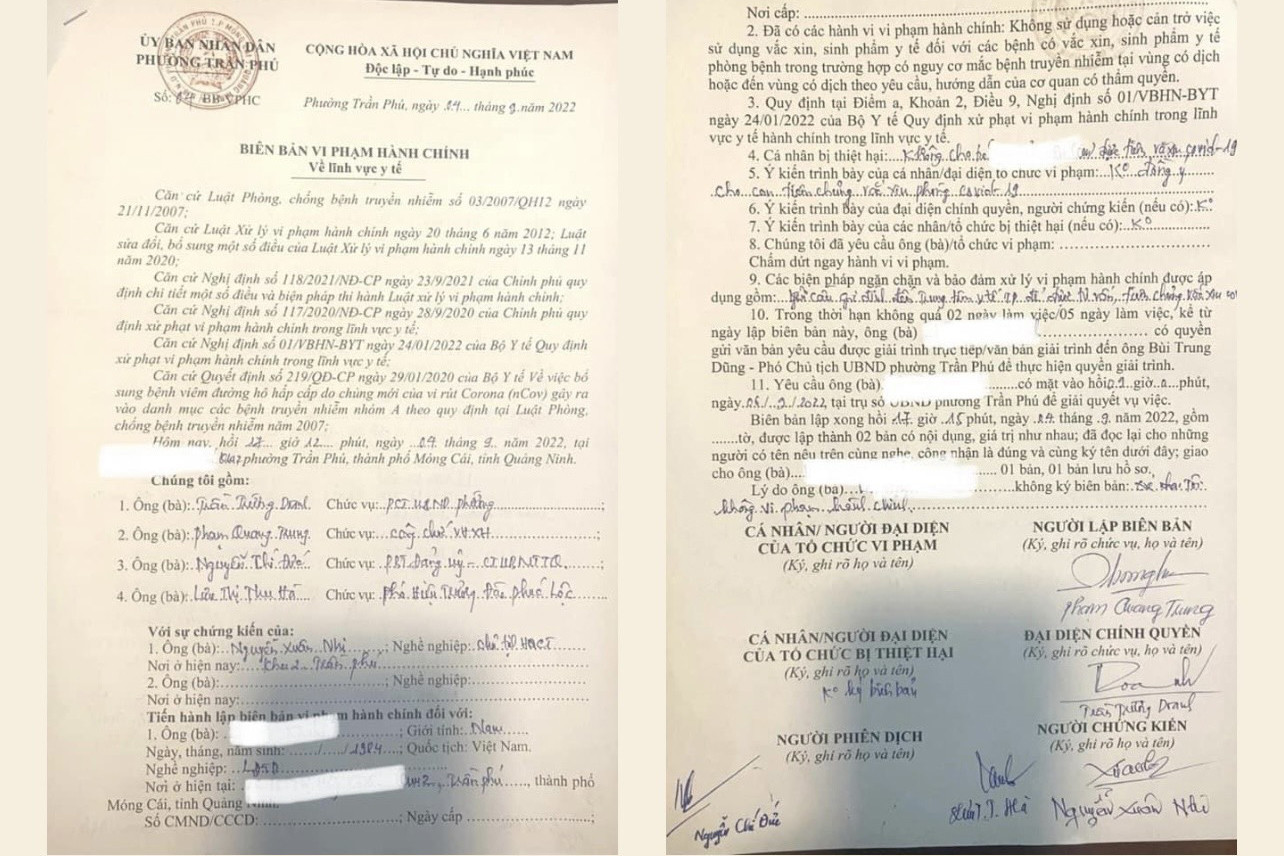 ỦY BAN NHÂN DÂN
PHƯỜNG TRẦN PHÚ
CỘNG HÒA XÃ HỘI CHỦ NGHĨA VIỆT NAM
Độc lập - Tự do - Hạnh phúc
Số: BB-VPHC
Phường Trần Phú, ngày 04... tháng 9 năm 2022
BIÊN BẢN VI PHẠM HÀNH CHÍNH
Về lĩnh vực y tế
Căn cứ Luật Phòng, chống bệnh truyền nhiễm số 03/2007/QH12 ngày
21/11/2007;
Căn cứ Luật Xử lý vi phạm hành chính ngày 20 tháng 6 năm 2012; Luật
sửa đổi, bổ sung một số điều của Luật Xử lý vi phạm hành chính ngày 13 tháng 11
năm 2020;
Căn cứ Nghị định số 118/2021/NĐ-CP ngày 23/9/2021 của Chính phủ quy
định chi tiết một số điều và biện pháp thi hành Luật xử lý vi phạm hành chính;
Căn cứ Nghị định số 117/2020/NĐ-CP ngày 28/9/2020 của Chính phủ quy
định xử phạt vi phạm hành chính trong lĩnh vực y tế;
Căn cứ Nghị định số 01/VBHN-BYT ngày 24/01/2022 của Bộ Y tế Quy định
xử phạt vi phạm hành chính trong lĩnh vực y tế;
Căn cứ Quyết định số 219/QĐ-CP ngày 29/01/2020 của Bộ Y tế Về việc bổ
sung bệnh viêm đường hô hấp cấp do chủng mới của vi rút Corona (nCov) gây ra
vào danh mục các bệnh truyền nhiễm nhóm A theo quy định tại Luật Phòng,
chống bệnh truyền nhiễm năm 2007;
Hôm nay, hồi 17... giờ 12... phút, ngày ..04.. tháng ..9.. năm 2022, tại
phường Trần Phú, thành phố Móng Cái, tỉnh Quảng Ninh.
Chúng tôi gồm:
1. Ông (bà): Trần Trường Doanh Chức vụ: PCT UBND phường
2. Ông (bà): Phạm Quang Trung Chức vụ: công chức VHXH
3. Ông (bà): Nguyễn Chí Đức Chức vụ: PBT Đảng ủy - CTUBMTTQ
4. Ông (bà): Liêu Thị Thu Hà Chức vụ: Phó Hiệu Trưởng Đào Phúc Lộc
Với sự chứng kiến của:
1. Ông (bà): Nguyễn Xuân Nhị; Nghề nghiệp:
Nơi ở hiện nay: Khu 2 Trần phú
2. Ông (bà):; Nghề nghiệp:
Nơi ở hiện nay:
Tiến hành lập biên bản vi phạm hành chính đối với:
1. Ông (bà):; Giới tính: Nam
Ngày, tháng, năm sinh: ....../....../1984; Quốc tịch: Việt Nam.
Nghề nghiệp: LĐTD
Nơi ở hiện tại: Trần phú, thành phố
Móng Cái, tỉnh Quảng Ninh.
Số CMND/CCCD: Ngày cấp
Nơi cấp:
2. Đã có các hành vi vi phạm hành chính: Không sử dụng hoặc cản trở việc
sử dụng vắc xin, sinh phẩm y tế đối với các bệnh có vắc xin, sinh phẩm y tế
phòng bệnh trong trường hợp có nguy cơ mắc bệnh truyền nhiễm tại vùng có dịch
hoặc đến vùng có dịch theo yêu cầu, hướng dẫn của cơ quan có thẩm quyền.
3. Quy định tại Điểm a, Khoản 2, Điều 9, Nghị định số 01/VBHN-BYT
ngày 24/01/2022 của Bộ Y tế Quy định xử phạt vi phạm hành chính trong lĩnh
vực y tế hành chính trong lĩnh vực y tế.
4. Cá nhân bị thiệt hại: Không cho bé được tiêm vắc xin covid-19
5. Ý kiến trình bày của cá nhân/đại diện to chưc vi phạm: Ko đồng ý
cho con tiêm chủng vắc xin phòng covid 19
6. Ý kiến trình bày của đại diện chính quyền, người chứng kiến (nếu có): Ko
7. Ý kiến trình bày của các nhân/tổ chức bị thiệt hại (nếu có): Ko
8. Chúng tôi đã yêu cầu ông (bà)/tổ chức vi phạm:
Chấm dứt ngay hành vi vi phạm.
9. Các biện pháp ngăn chặn và bảo đảm xử lý vi phạm hành chính được áp
dụng gồm: yêu cầu gia đình đến Trung tâm y tế TP để được tư vấn, tiêm chủng vắc xin
10. Trong thời hạn không quá 02 ngày làm việc/05 ngày làm việc, kể từ
ngày lập biên bản này, ông (bà) có quyền
gửi văn bản yêu cầu được giải trình trực tiếp/văn bản giải trình đến ông Bùi Trung
Dũng - Phó Chủ tịch UBND phường Trần Phú để thực hiện quyền giải trình.
11. Yêu cầu ông (bà) có mặt vào hồi giờ phút,
ngày 06/9/2022, tại trụ sở UBND phường Trần Phú để giải quyết vụ việc.
Biên bản lập xong hồi 17 giờ 15 phút, ngày 04 tháng 9 năm 2022, gồm
tờ, được lập thành 02 bản có nội dung, giá trị như nhau; đã đọc lại cho những
người có tên nêu trên cùng nghe, công nhận là đúng và cùng ký tên dưới đây; giao
cho ông (bà) 01 bản, 01 bản lưu hồ sơ.
Lý do ông (bà) không ký biên bản:
không vi phạm hành chính
CÁ NHÂN/ NGƯỜI ĐẠI DIỆN
CỦA TỔ CHỨC VI PHẠM
(Ký, ghi rõ họ và tên)
NGƯỜI LẬP BIÊN BẢN
(Ký, ghi rõ chức vụ, họ và tên)
Phạm Quang Trung
CÁ NHÂN/NGƯỜI ĐẠI DIỆN
CỦA TỔ CHỨC BỊ THIỆT HẠI
(Ký, ghi rõ họ và tên)
Ko ký biên bản
ĐẠI DIỆN CHÍNH QUYỀN
(Ký, ghi rõ chức vụ, họ và tên)
Trần Trường Doanh
NGƯỜI PHIÊN DỊCH
(Ký, ghi rõ họ và tên)
NGƯỜI CHỨNG KIẾN
(Ký, ghi rõ họ và tên)
Nguyễn Chí Đức
Liêu T. T. Hà
Nguyễn Xuân Nhị